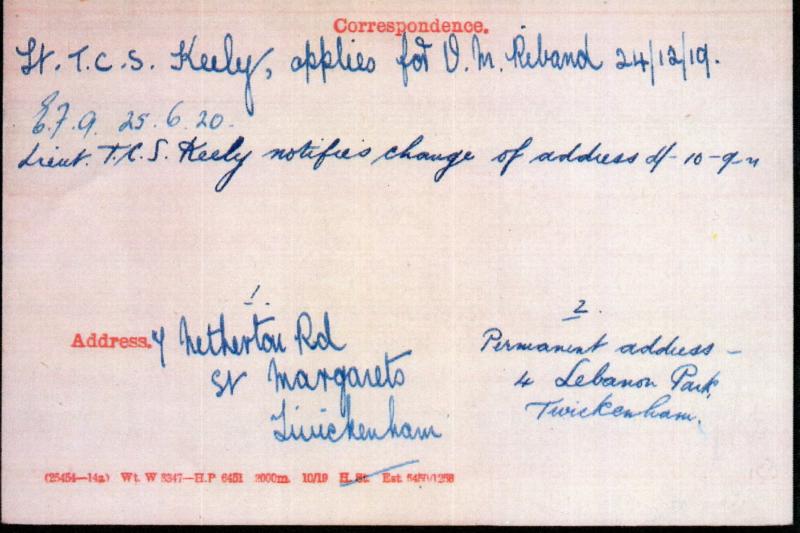 Correspondence.
Lt. T.C.S. Keely, applies for V.M. Riband 24/12/19.
E.F.9. 25.6.20.
Lieut. T.C.S. Keely notifies change of address d/- 10-9-21
1.
2.
Address. 4 Netherton Rd
St Margarets
Twickenham
Permanent address -
4 Lebanon Park,
Twickenham.
(25454—14a) Wt. W 3347—H.P 6451 2000m. 10/19 H. St. Est. 5450/1258